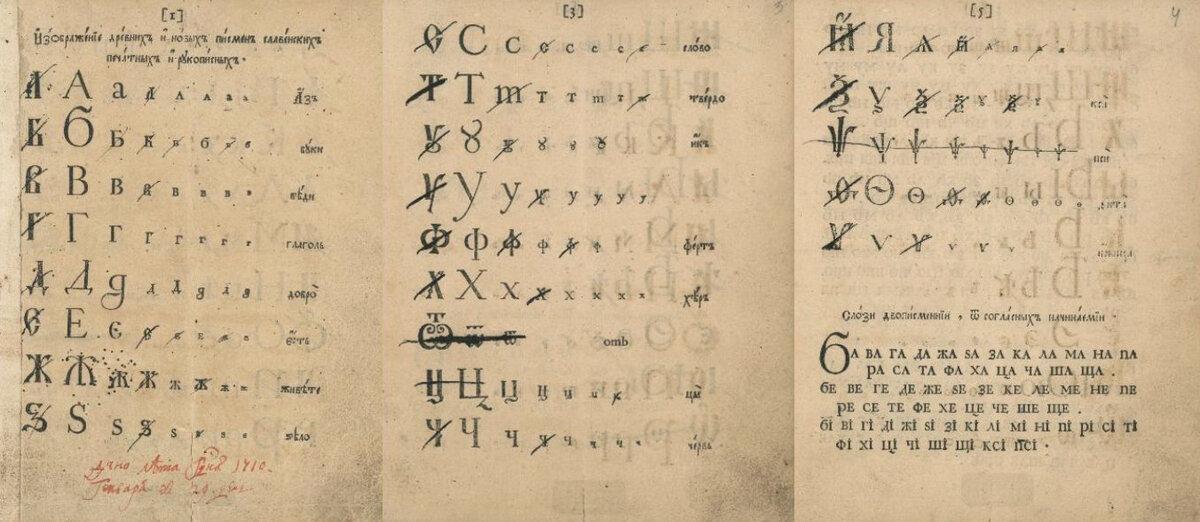 [1]
Изображенїе древнихъ и новыхъ писменъ славенскихъ
печатныхъ и рукописныхъ.
А А а а а а а а Азъ
Б Б Б Б в б б б буки
В В В в в в в в вѣди
Г Г Г г г г г г глаголь
Д Д д д д д д д добро
Є Е є е е е е е єсть
Ж Ж Ж Ж ж ж ж ж живѣте
Ѕ Ѕ ѕ ѕ ѕ ѕ ѕ ѕ ѕѣло
лѣта 1710.
Генваря 29
[3]
С С с с с с с с слово
Т Т т т т т т т твердо
Ꙋ Ꙋ ꙋ ꙋ ꙋ ꙋ икъ
У У у у у у у у
Ф ф ф ф ф ф ф фертъ
Х Х х х х х х х хѣръ
Ѿ ѿ ѿ отъ
Ц Ц ц ц ц ц ц цы
Ч Ч ч ч ч ч ч червь
[5]
Ꙗ Я я ꙗ я я я я
Ѯ ѯ ѯ ѯ ѯ ѯ ѯ ѯї
Ѱ ѱ ѱ ѱ ѱ ѱ ѱ пси
Ѳ Ѳ ѳ ѳ ѳ ѳ ѳ ѳ ѳита
Ѵ ѵ ѵ ѵ ѵ ѵ ѵ ижица
Слоѕи двописменнїи, ѿ согласныхъ начинаемїи.
ба ва га да жа ѕа за ка ла ма на па
ра са та фа ха ца ча ша ща.
бе ве ге де же ѕе зе ке ле ме не пе
ре се те фе хе це че ше ще.
бї вї гї дї жї ѕї зї кї лї мї нї пї рї сї тї
фї хї цї чї шї щї ксї псї.